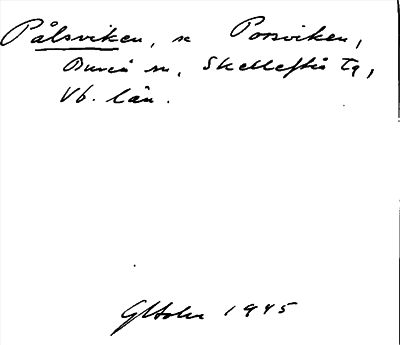 Pålsviken, se Porsviken,
Bureå sn, Skellefteå tg,
Vb. län.
GHolm 1945